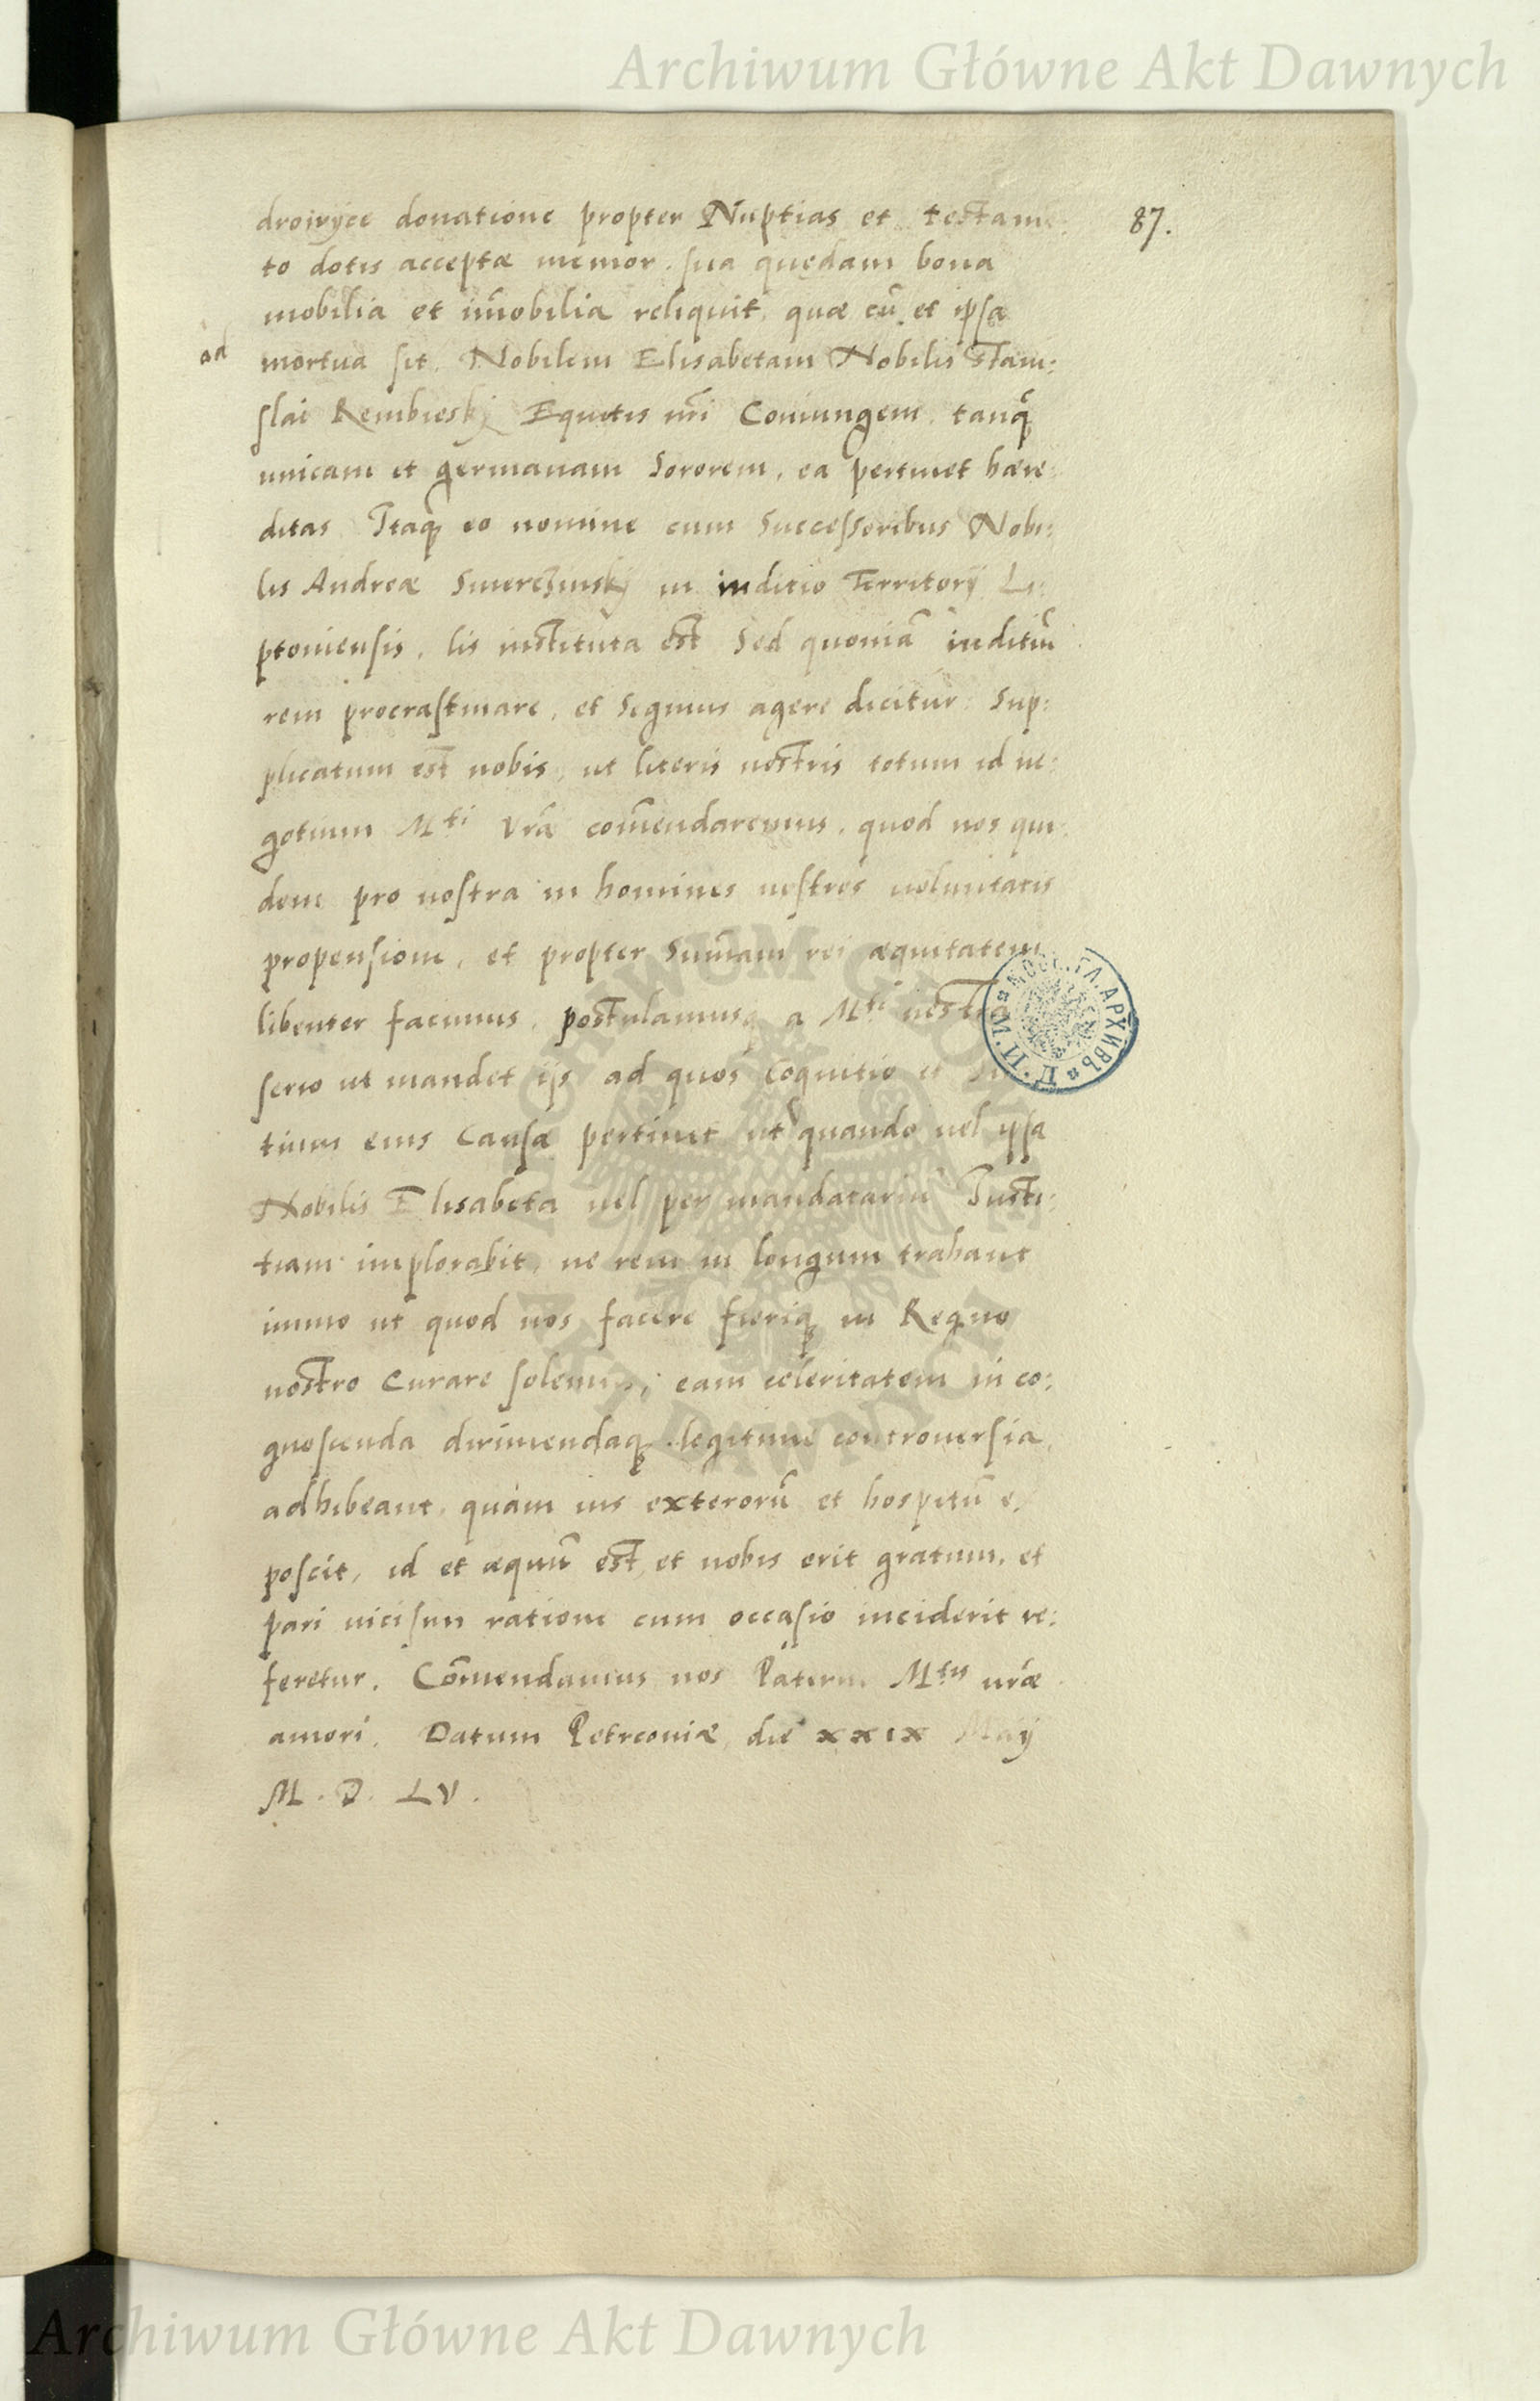 Archiwum Główne Akt Dawnych
87.
droivÿce donatione propter Nuptias et testam
to dotis acceptæ memor. sua quędam bona
mobilia et im̃obilia reliquit, quæ cũ et ipsa
ad
mortua sit. Nobilem Elisabetam Nobilis Stani:
slai Rembiesky Equitis nr̃i Coniungem, tanq̃
unicam et germanam Sororem, ea pertinet hære:
ditas Itaq eo nomine cum Successoribus Nobi:
lis Andreæ Smerczinsky in inditio Territorÿ Li:
ptoniensis, lis instituta est Sed quoniã inditiũ
rem procrastinare, et Segnius agere dicitur: Sup:
plicatum est nobis, ut literis nostris totum id ne:
gotium Mti Vrã com̃endaremus, quod nos qui:
dem pro nostra in homines nostros voluntatis
propensione, et propter Sum̃am rei æquitatem
libenter facimus, postulamusq a Mti vestra
serio ut mandet ijs ad quos Cognitio et
tium eius Causæ pertinet ut quando vel ipsa
Nobilis Elisabeta vel per mandatariũ Iusti:
tiam implorabit, ne rem in longum trahant
immo ut quod nos facere fieriq in Regno
nostro Curare solemus, eam celeritatem in co:
gnoscenda dirimendaq legitime controuersia,
adhibeant, quam ius exterorũ et hospitũ
poscit, id et æquũ est, et nobis erit gratum, et
pari vicisim ratione cum occasio inciderit re:
feretur. Com̃endamus nos Paterno Mtis vræ
amori. Datum Petrcoviæ, die XXIX Maÿ
M. D. LV.
ARCHIWUM GŁÓWNE
AKT DAWNYCH
МОСК. ГЛ. АРХИВЪ
Archiwum Główne Akt Dawnych